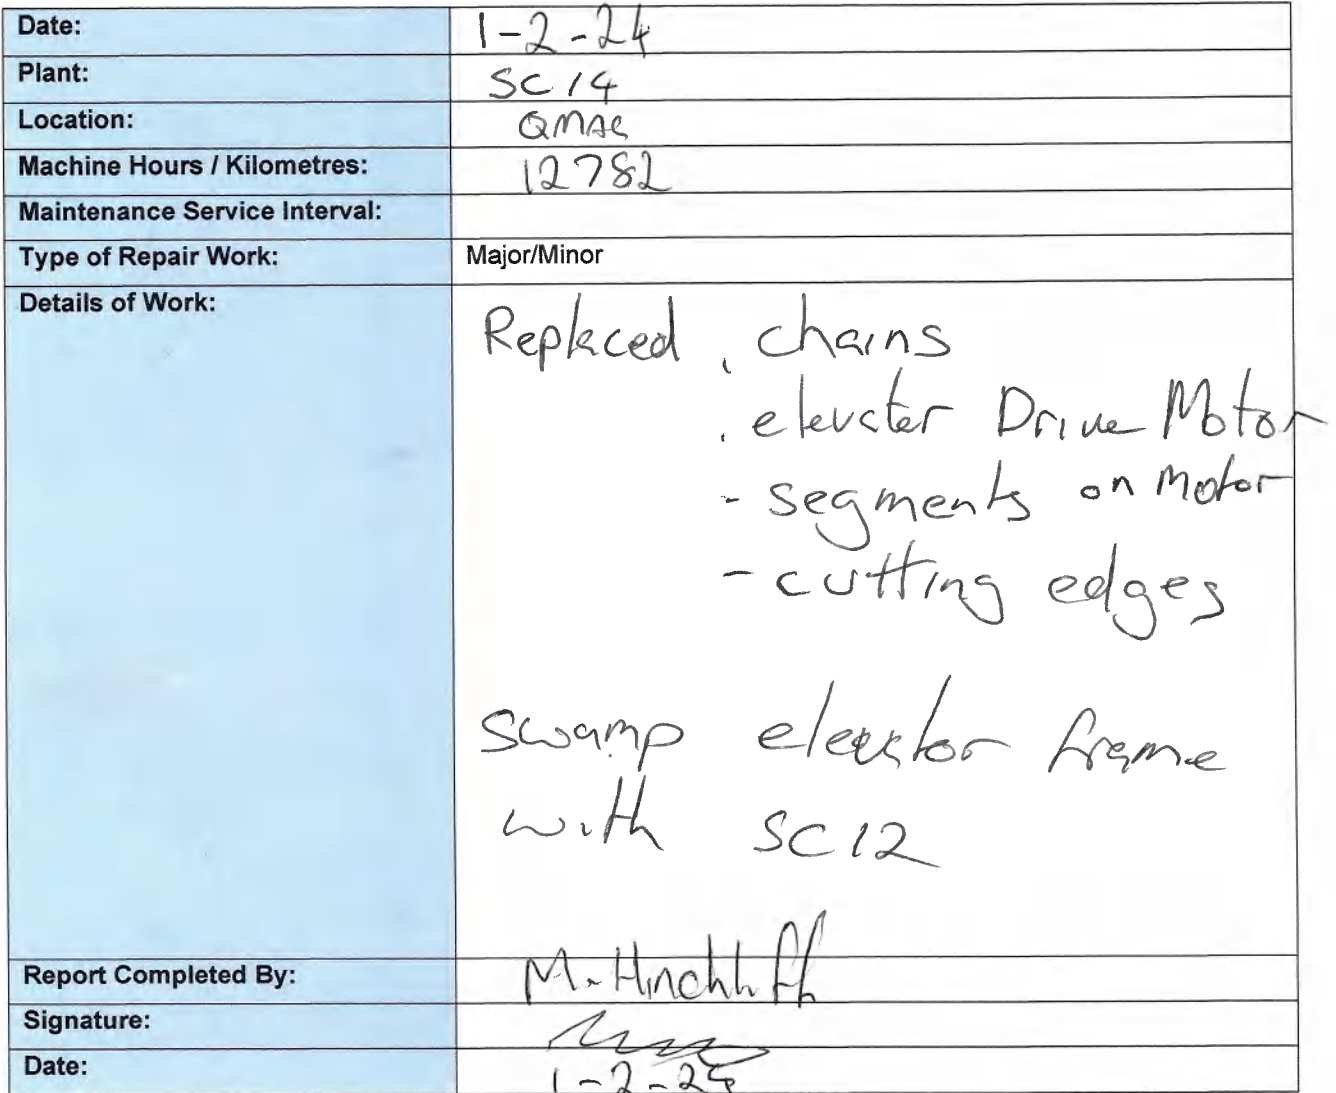 Date: 1-2-24
Plant: SC14
Location: QMAG
Machine Hours / Kilometres: 12782
Maintenance Service Interval:
Type of Repair Work: Major/Minor
Details of Work: Replaced . chains
. elevater Drive Motor
- segments on motor
- cutting edges
swamp elevator frame
with SC12
Report Completed By: M. Hinchliff
Signature:
Date: 1-2-24